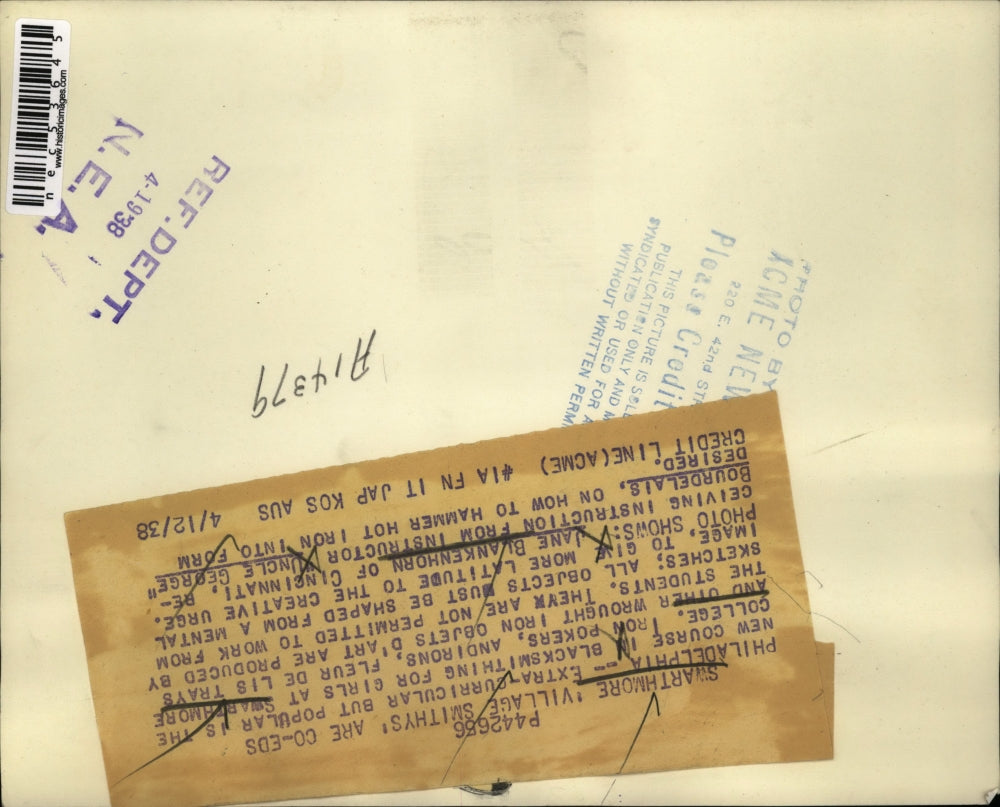 nec53645
www.historicimages.com
REF.DEPT.
4-1938
N.E.A.
PHOTO BY
ACME NEW
220 E. 42nd ST
Please Credit
THIS PICTURE IS SOL
PUBLICATION ONLY AND M
SYNDICATED OR USED FOR A
WITHOUT WRITTEN PERM
A14379
P442656
SWARTHMORE 'VILLAGE SMITHYS' ARE CO-EDS
PHILADELPHIA -- EXTRA-CURRICULAR BUT POPULAR IS THE
NEW COURSE IN BLACKSMITHING FOR GIRLS AT SWARTHMORE
COLLEGE. IRON POKERS, ANDIRONS, FLEUR DE LIS TRAYS
AND OTHER WROUGHT IRON OBJETS D'ART ARE PRODUCED BY
THE STUDENTS. THEY ARE NOT PERMITTED TO WORK FROM
SKETCHES; ALL OBJECTS MUST BE SHAPED FROM A MENTAL
IMAGE, TO GIVE MORE LATITUDE TO THE CREATIVE URGE.
PHOTO SHOWS: JANE BLANKENHORN OF CINCINNATI, RE-
CEIVING INSTRUCTION FROM INSTRUCTOR "UNCLE GEORGE"
BOURDELAIS, ON HOW TO HAMMER HOT IRON INTO FORM
DESIRED.
CREDIT LINE(ACME) #1A FN IT JAP KOS AUS 4/12/38